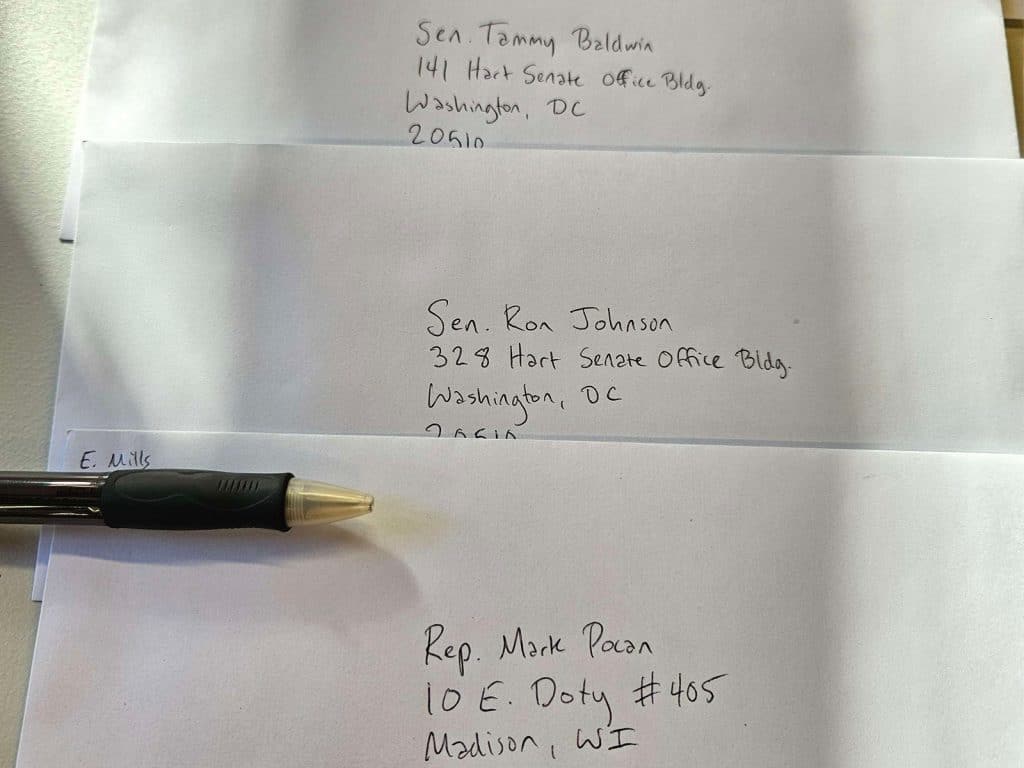 Sen. Tammy Baldwin
141 Hart Senate Office Bldg.
Washington, DC
20510
Sen. Ron Johnson
328 Hart Senate Office Bldg.
Washington, DC
20510
E. Mills
Rep. Mark Pocan
10 E. Doty #405
Madison, WI